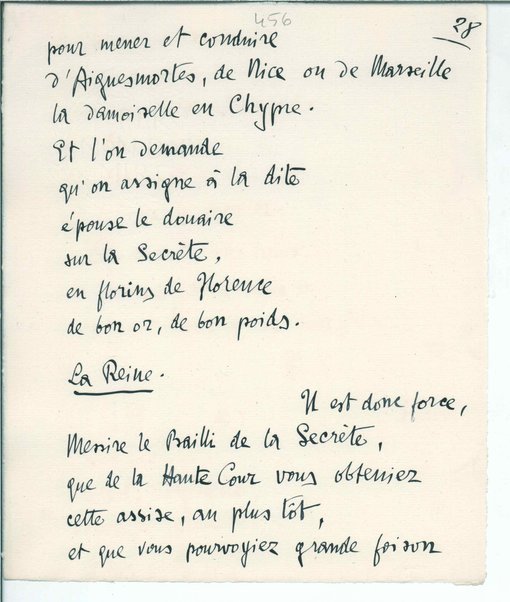 456
28
pour mener et conduire
d'Aiguesmortes, de Nice ou de Marseille
la damoiselle en Chypre.
Et l'on demande
qu'on assigne à la dite
épouse le douaire
sur la Secrète,
en florins de Florence
de bon or, de bon poids.
La Reine.
Il est donc force,
Messire le Bailli de la Secrète,
que de la Haute Cour vous obteniez
cette assise, au plus tôt,
et que vous pourvoyiez grande foison